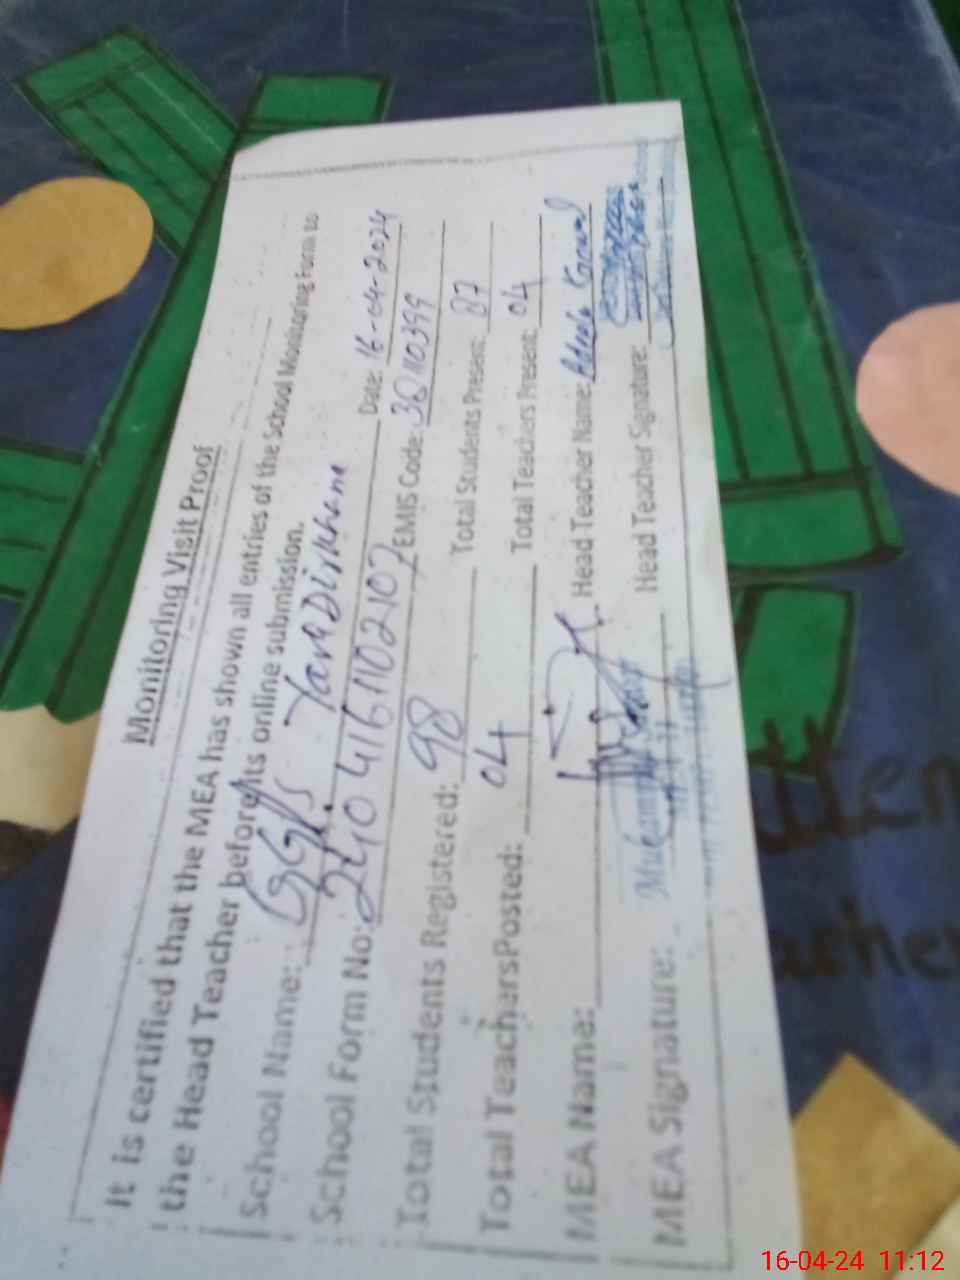 Monitoring Visit Proof
It is certified that the MEA has shown all entries of the School Monitoring Form to
the Head Teacher before its online submission.
School Name: GGPS Yara Dirkhane Date: 16-04-2024
School Form No: 2404161102107 EMIS Code: 36110399
Total Students Registered: 98 Total Students Present: 87
Total TeachersPosted: 04 Total Teachers Present: 04
MEA Name: Head Teacher Name: Adeela Kanwal
MEA Signature: Head Teacher Signature:
16-04-24 11:12